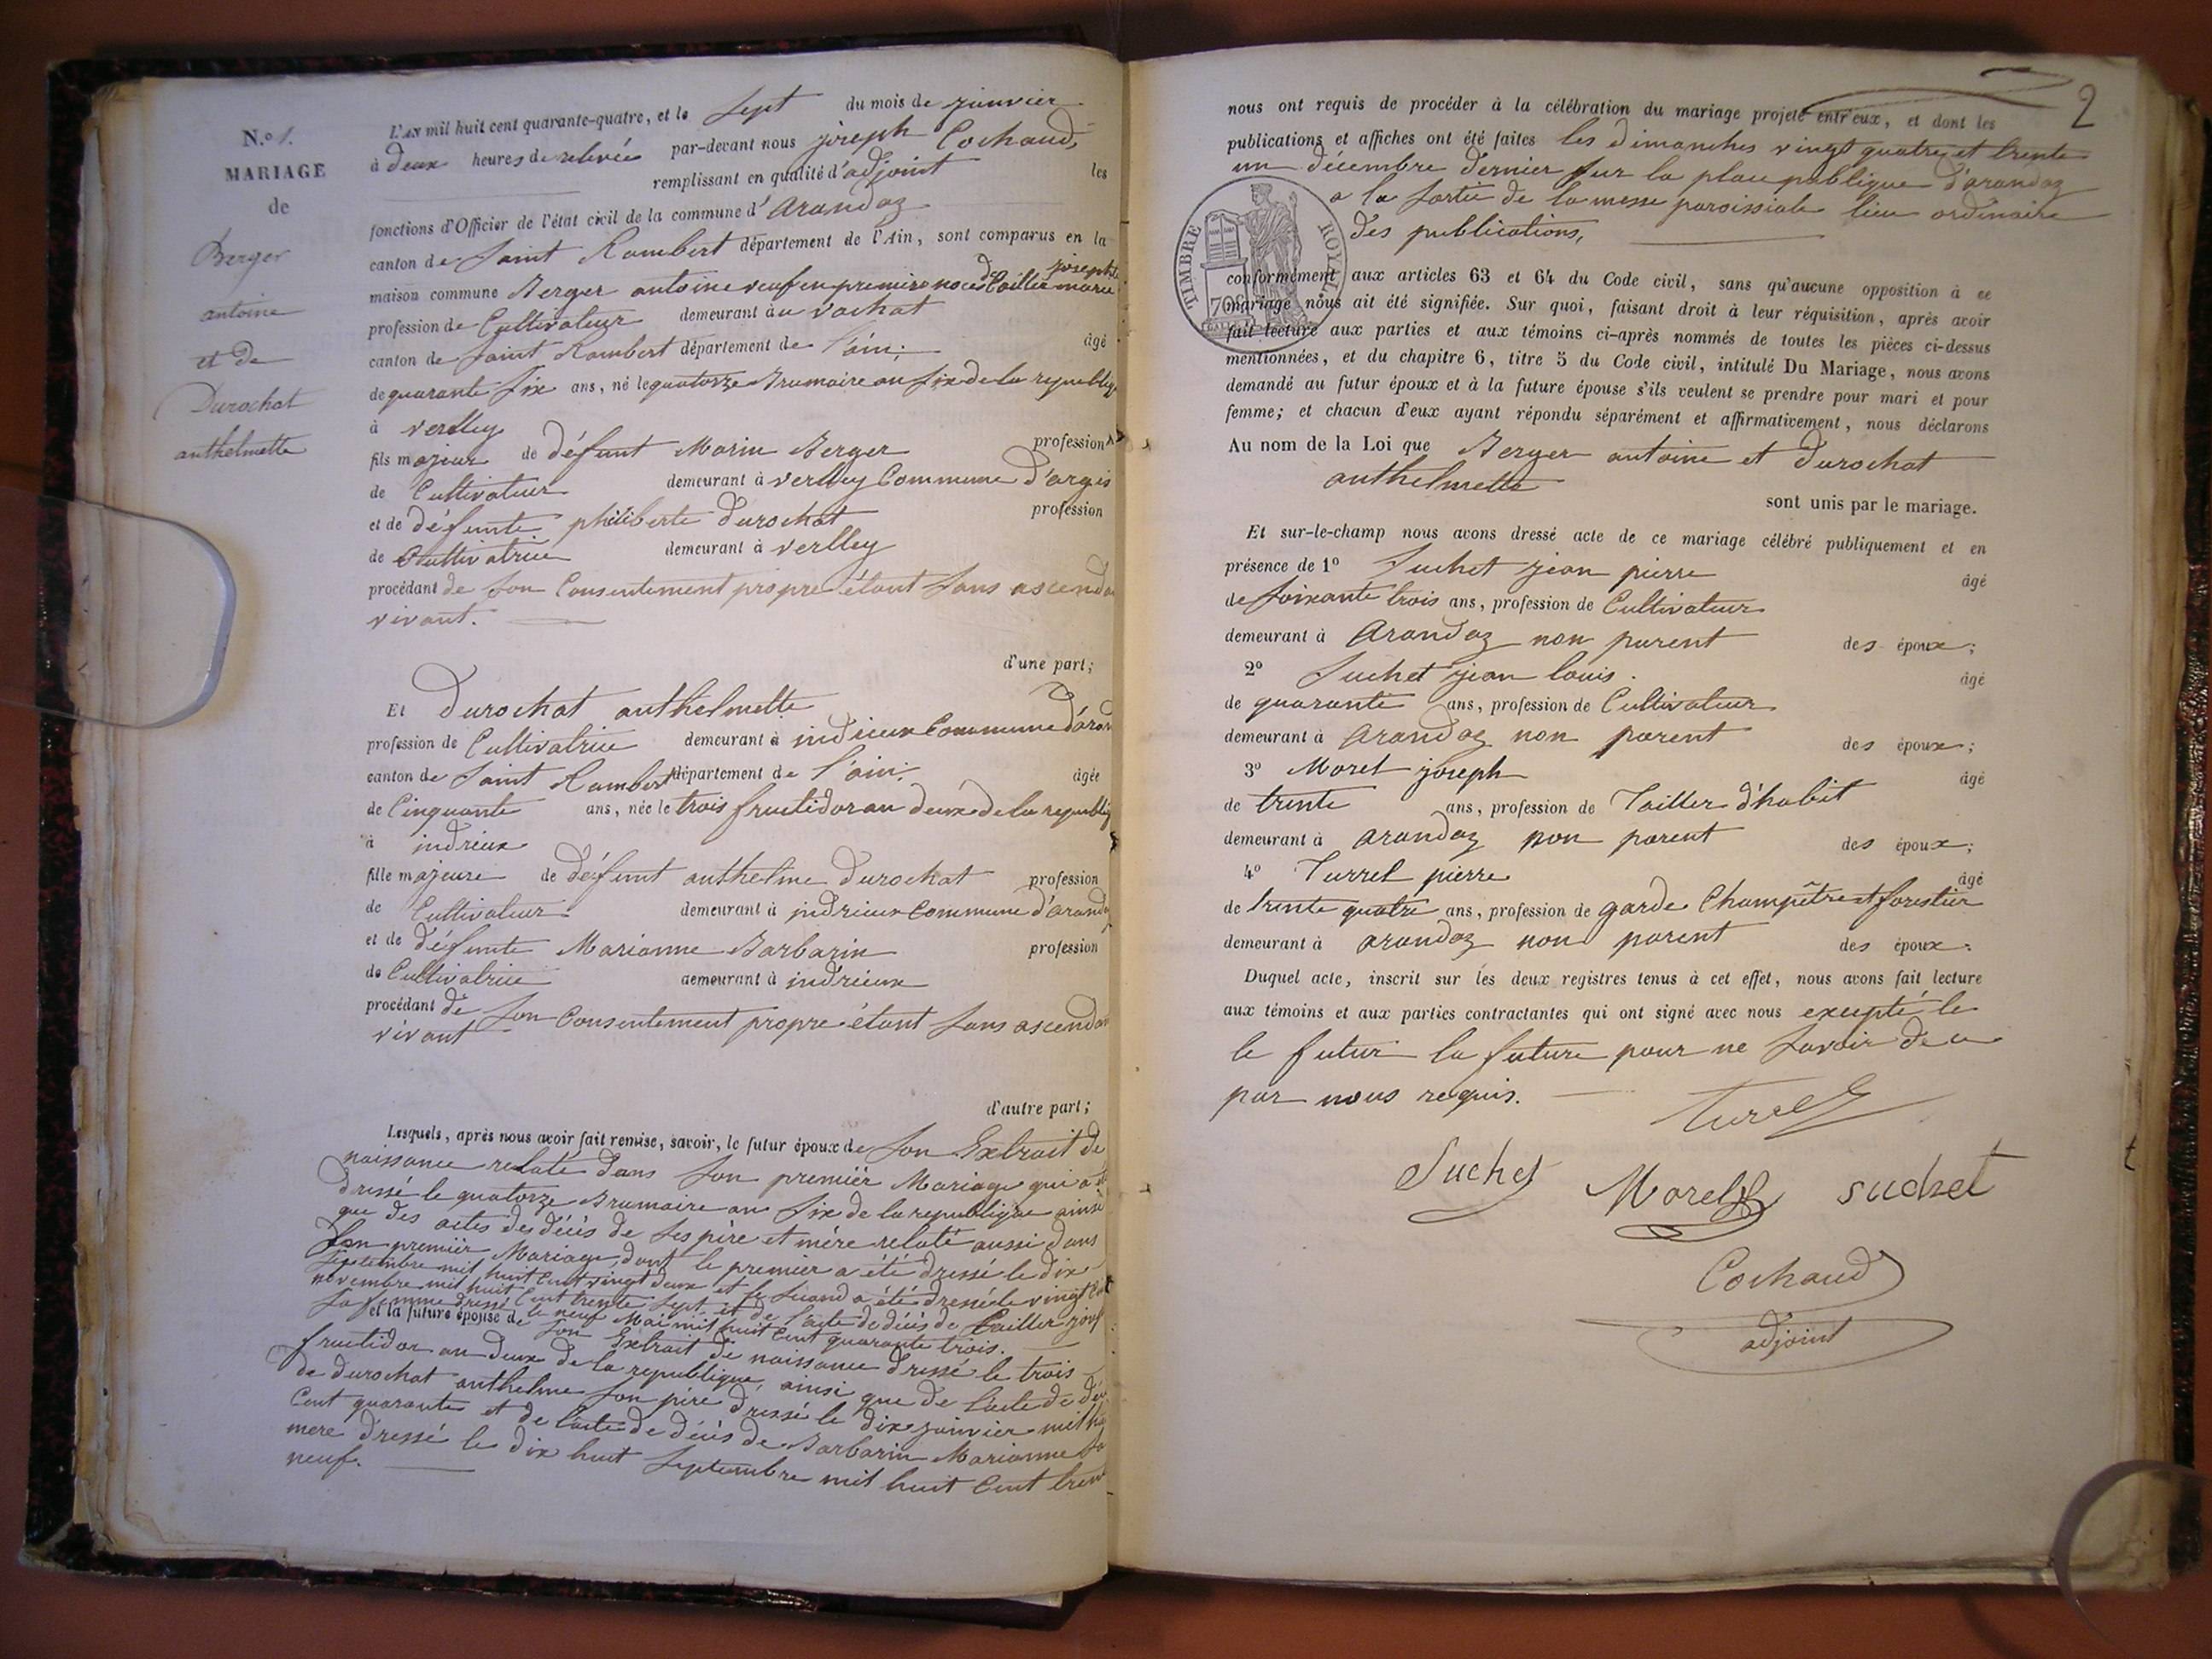 N.º 1.
MARIAGE
de
Berger
antoine
et de
Durochat
anthelmette
L'AN mil huit cent quarante-quatre, et le sept du mois de janvier
à deux heures de relevée par-devant nous joseph Cochaud,
remplissant en qualité d'adjoint les
fonctions d'Officier de l'état civil de la commune d'arandaz
canton de Saint Rambert département de l'Ain, sont comparus en la
maison commune Berger antoine veuf en premiere noces de Caillier marie josephte
profession de Cultivateur demeurant au vachat
canton de Saint Rambert département de l'ain; âgé
de quarante six ans, né le quatorze Brumaire an six de la republiq
à verlley
fils majeur de défunt Marin Berger profession
de Cultivateur demeurant à verlley Commune d'argis
et de défunte philiberte Durochat profession
de Cultivatrice demeurant à verlley
procédant de son Consentement propre étant sans ascenda
vivant.
d'une part;
Et Durochat anthelmette
profession de Cultivatrice demeurant à indrieux Commune d'aran
canton de Saint Rambert département de l'ain; âgée
de Cinquante ans, née le trois fructidor an deux de la republiq
à indrieux
fille majeure de défunt anthelme Durochat profession
de Cultivateur demeurant à indrieux Commune d'aranda
et de défunte Marianne Barbarin profession
de Cultivatrice demeurant à indrieux
procédant de son Consentement propre étant sans ascendan
vivant
d'autre part;
Lesquels, après nous avoir fait remise, savoir, le futur époux de son Extrait de
naissance relaté dans son premier Mariage qui a été
dressé le quatorze Brumaire an six de la republique ainsi
que des actes des décès de ses père et mère relaté aussi dans
son premier Mariage, dont le premier a été dressé le dix
septembre mil huit Cent vingt deux et le second a été dressé le vingt
novembre mil huit Cent trente sept et de l'acte de décès de Caillier
sa femme dressé le neuf Mai mil huit Cent quarante trois.
et la future épouse de son Extrait de naissance dressé le trois
fructidor an deux de la republique, ainsi que de l'acte de
de durochat anthelme son père dressé le dix janvier mil
Cent quarante et de l'acte de décès de Barbarin Marianne sa
mere dressé le dix huit Septembre mil huit Cent tren
neuf.
2
nous ont requis de procéder à la célébration du mariage projeté entr'eux, et dont les
publications et affiches ont été faites les dimanches vingt quatre et trente
un décembre dernier sur la place publique d'arandaz
a la sortie de la messe paroissiale lieu ordinaire
des publications,
TIMBRE ROYAL
70c
conformément aux articles 63 et 64 du Code civil, sans qu'aucune opposition à ce
mariage nous ait été signifiée. Sur quoi, faisant droit à leur réquisition, après avoir
fait lecture aux parties et aux témoins ci-après nommés de toutes les pièces ci-dessus
mentionnées, et du chapitre 6, titre 5 du Code civil, intitulé Du Mariage, nous avons
demandé au futur époux et à la future épouse s'ils veulent se prendre pour mari et pour
femme; et chacun d'eux ayant répondu séparément et affirmativement, nous déclarons
Au nom de la Loi que Berger antoine et durochat
anthelmette
sont unis par le mariage.
Et sur-le-champ nous avons dressé acte de ce mariage célébré publiquement et en
présence de 1º Suchet jean pierre âgé
de soixante trois ans, profession de Cultivateur
demeurant à arandaz non parent des époux;
2º Suchet jean louis. âgé
de quarante ans, profession de Cultivateur
demeurant à arandaz non parent des époux;
3º Moret joseph âgé
de trente ans, profession de Tailler d'habit
demeurant à arandaz non parent des époux;
4º Turrel pierre âgé
de trente quatre ans, profession de garde Champêtre et forestier
demeurant à arandaz non parent des époux.
Duquel acte, inscrit sur les deux registres tenus à cet effet, nous avons fait lecture
aux témoins et aux parties contractantes qui ont signé avec nous excepté le
le futur la future pour ne savoir de ce
par nous requis.
Turrel
Suchet Morel suchet
Cochaud
adjoint